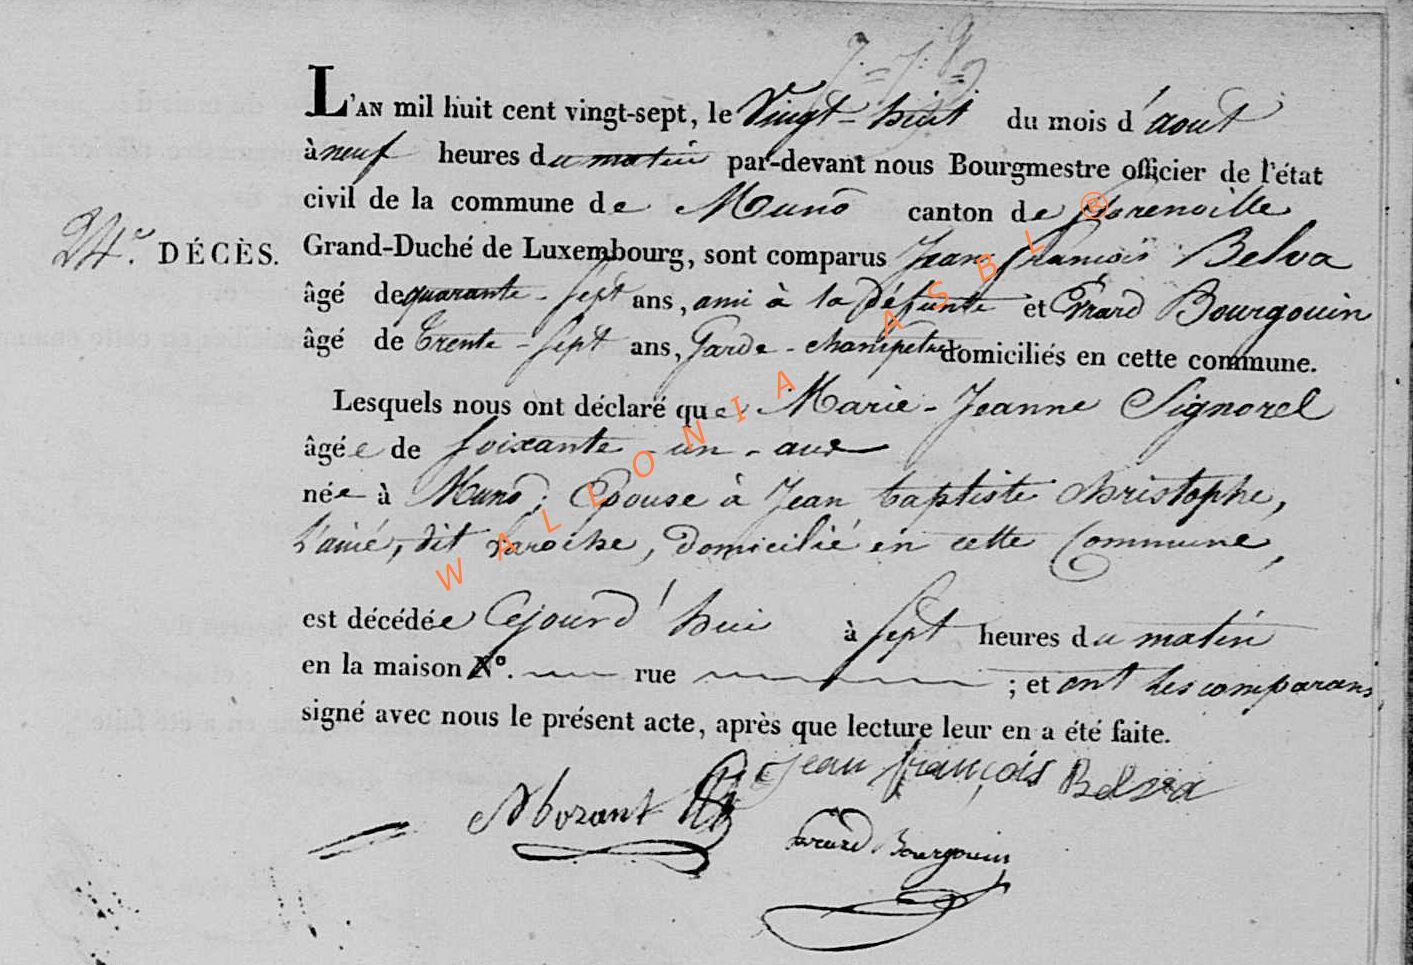 L'AN mil huit cent vingt-sept, le Vingt-huit du mois d'aout
à neuf heures du matin par-devant nous Bourgmestre officier de l'état
civil de la commune de Muno canton de florenville
24.e DÉCÈS. Grand-Duché de Luxembourg, sont comparus Jean françois Belva
âgé de quarante-sept ans, ami à la défunte et Erard Bourgouin
âgé de trente-sept ans, Garde-champetre domiciliés en cette commune.
Lesquels nous ont déclaré que Marie-Jeanne Signorel
âgée de soixante-un-ans
née à Muno, Epouse à Jean baptiste christophe,
l'ainé, dit Laroche, domicilié en cette Commune,
est décédée Cejourd'hui à sept heures du matin
en la maison N°. rue ; et ont les comparans
signé avec nous le présent acte, après que lecture leur en a été faite.
jean françois Belva
Nozant
Erard Bourgouin
WALLONIA ASBL ®